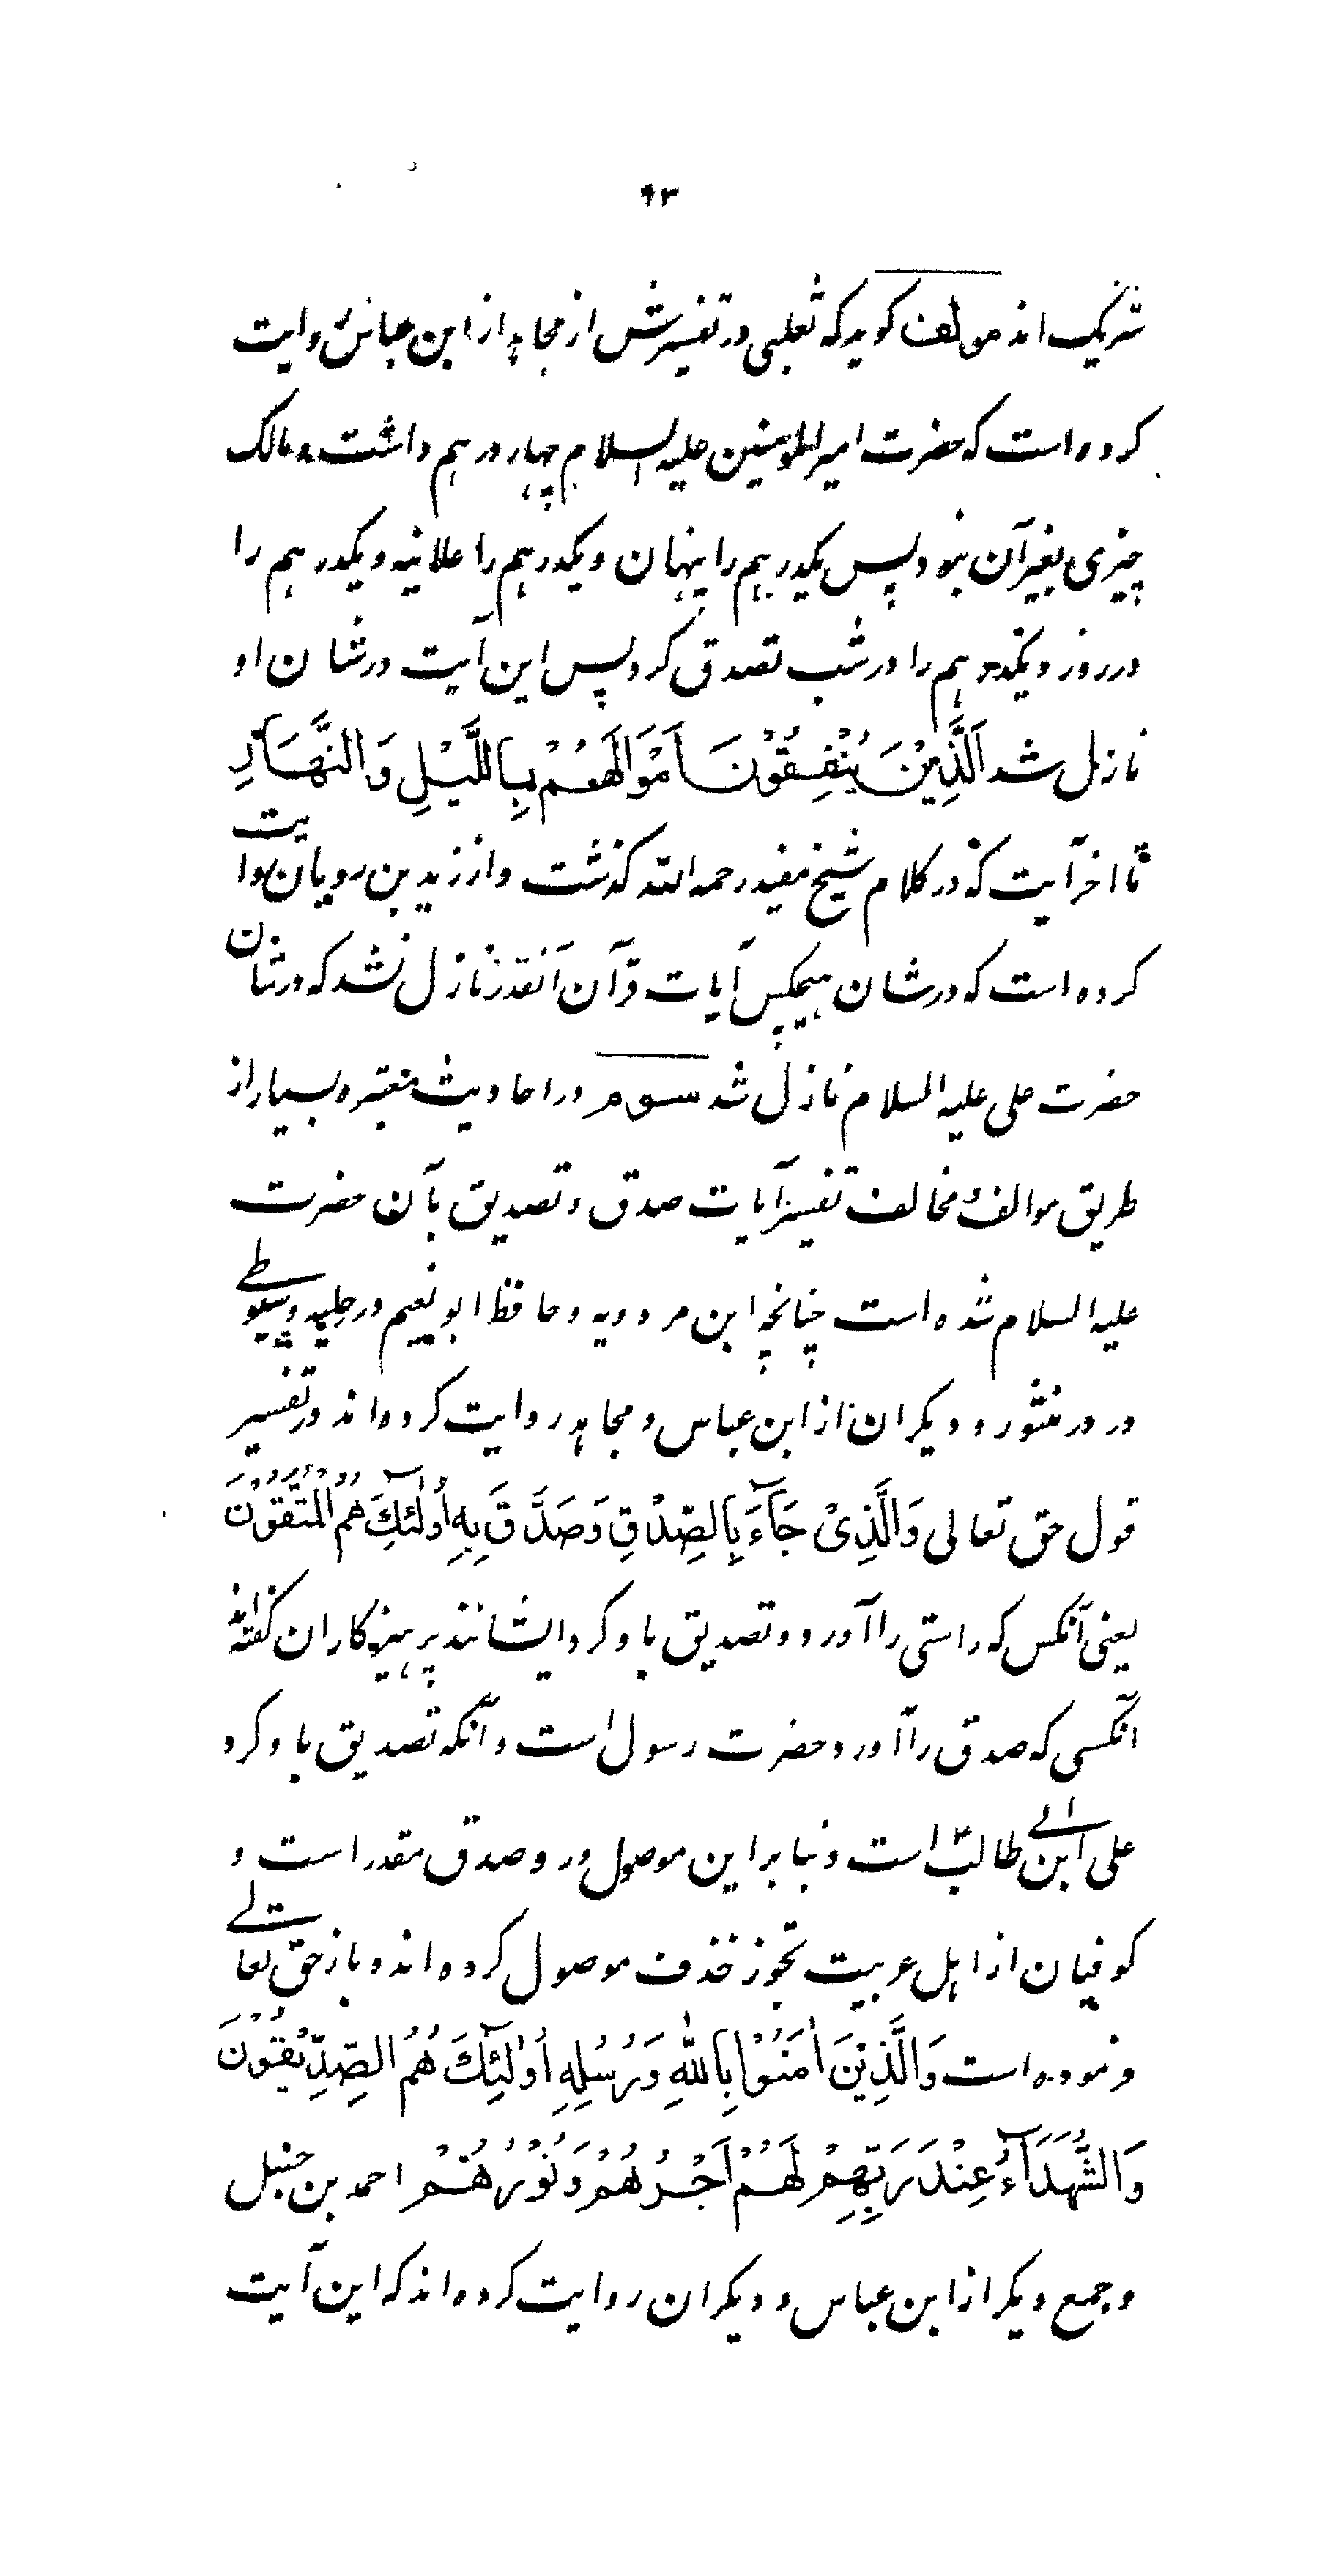 ۹۳
شریک اند مولف کوید که ثعلبی در تفسیرش از مجاهد از ابن عباس روایت
کرده است که حضرت امیرالمومنین علیه السلام چهار درهم داشت و مالک
چیزی بغیر آن نبود پس یکدرهم را پنهان و یکدرهم را علانیه و یکدرهم را
در روز و یکدرهم را در شب تصدق کرد پس این آیت در شان او
نازل شد اَلَّذِیْنَ یُنْفِقُوْنَ اَمْوَالَهُمْ بِاللَّیْلِ وَالنَّهَارِ
تا اخر آیت که در کلام شیخ مفید رحمه الله کذشت و از زید بن رومان روایت
کرده است که در شان هیچکس آیات قرآن آنقدر نازل نشد که در شان
حضرت علی علیه السلام نازل شد سوم در احادیث معتبره بسیار از
طریق موالف و مخالف تفسیر آیات صدق و تصدیق بآن حضرت
علیه السلام شده است چنانچه ابن مردویه و حافظ ابو نعیم در حلیه و سیوطی
در در منثور و دیکران از ابن عباس و مجاهد روایت کرده اند در تفسیر
قول حق تعالی وَالَّذِیْ جَآءَ بِالصِّدْقِ وَصَدَّقَ بِهِ اُولٰئِكَ هُمُ الْمُتَّقُوْنَ
یعنی آنکس که راستی را آورد و تصدیق باو کرد ایشانند پرهیزکاران کفته اند
آنکسی که صدق را آورد حضرت رسول است و آنکه تصدیق باو کرد
علی ابن ابی طالب است و بنا بر این موصول در و صدق مقدر است و
کوفیان از اهل عربیت تجوز حذف موصول کرده اند و باز حق تعالی
فرموده است وَالَّذِیْنَ اٰمَنُوْا بِاللّٰهِ وَرُسُلِهِ اُولٰئِكَ هُمُ الصِّدِّیْقُوْنَ
وَالشُّهَدَآءُ عِنْدَ رَبِّهِمْ لَهُمْ اَجْرُهُمْ وَنُوْرُهُمْ احمد بن حنبل
و جمع دیکر از ابن عباس و دیکران روایت کرده اند که این آیت